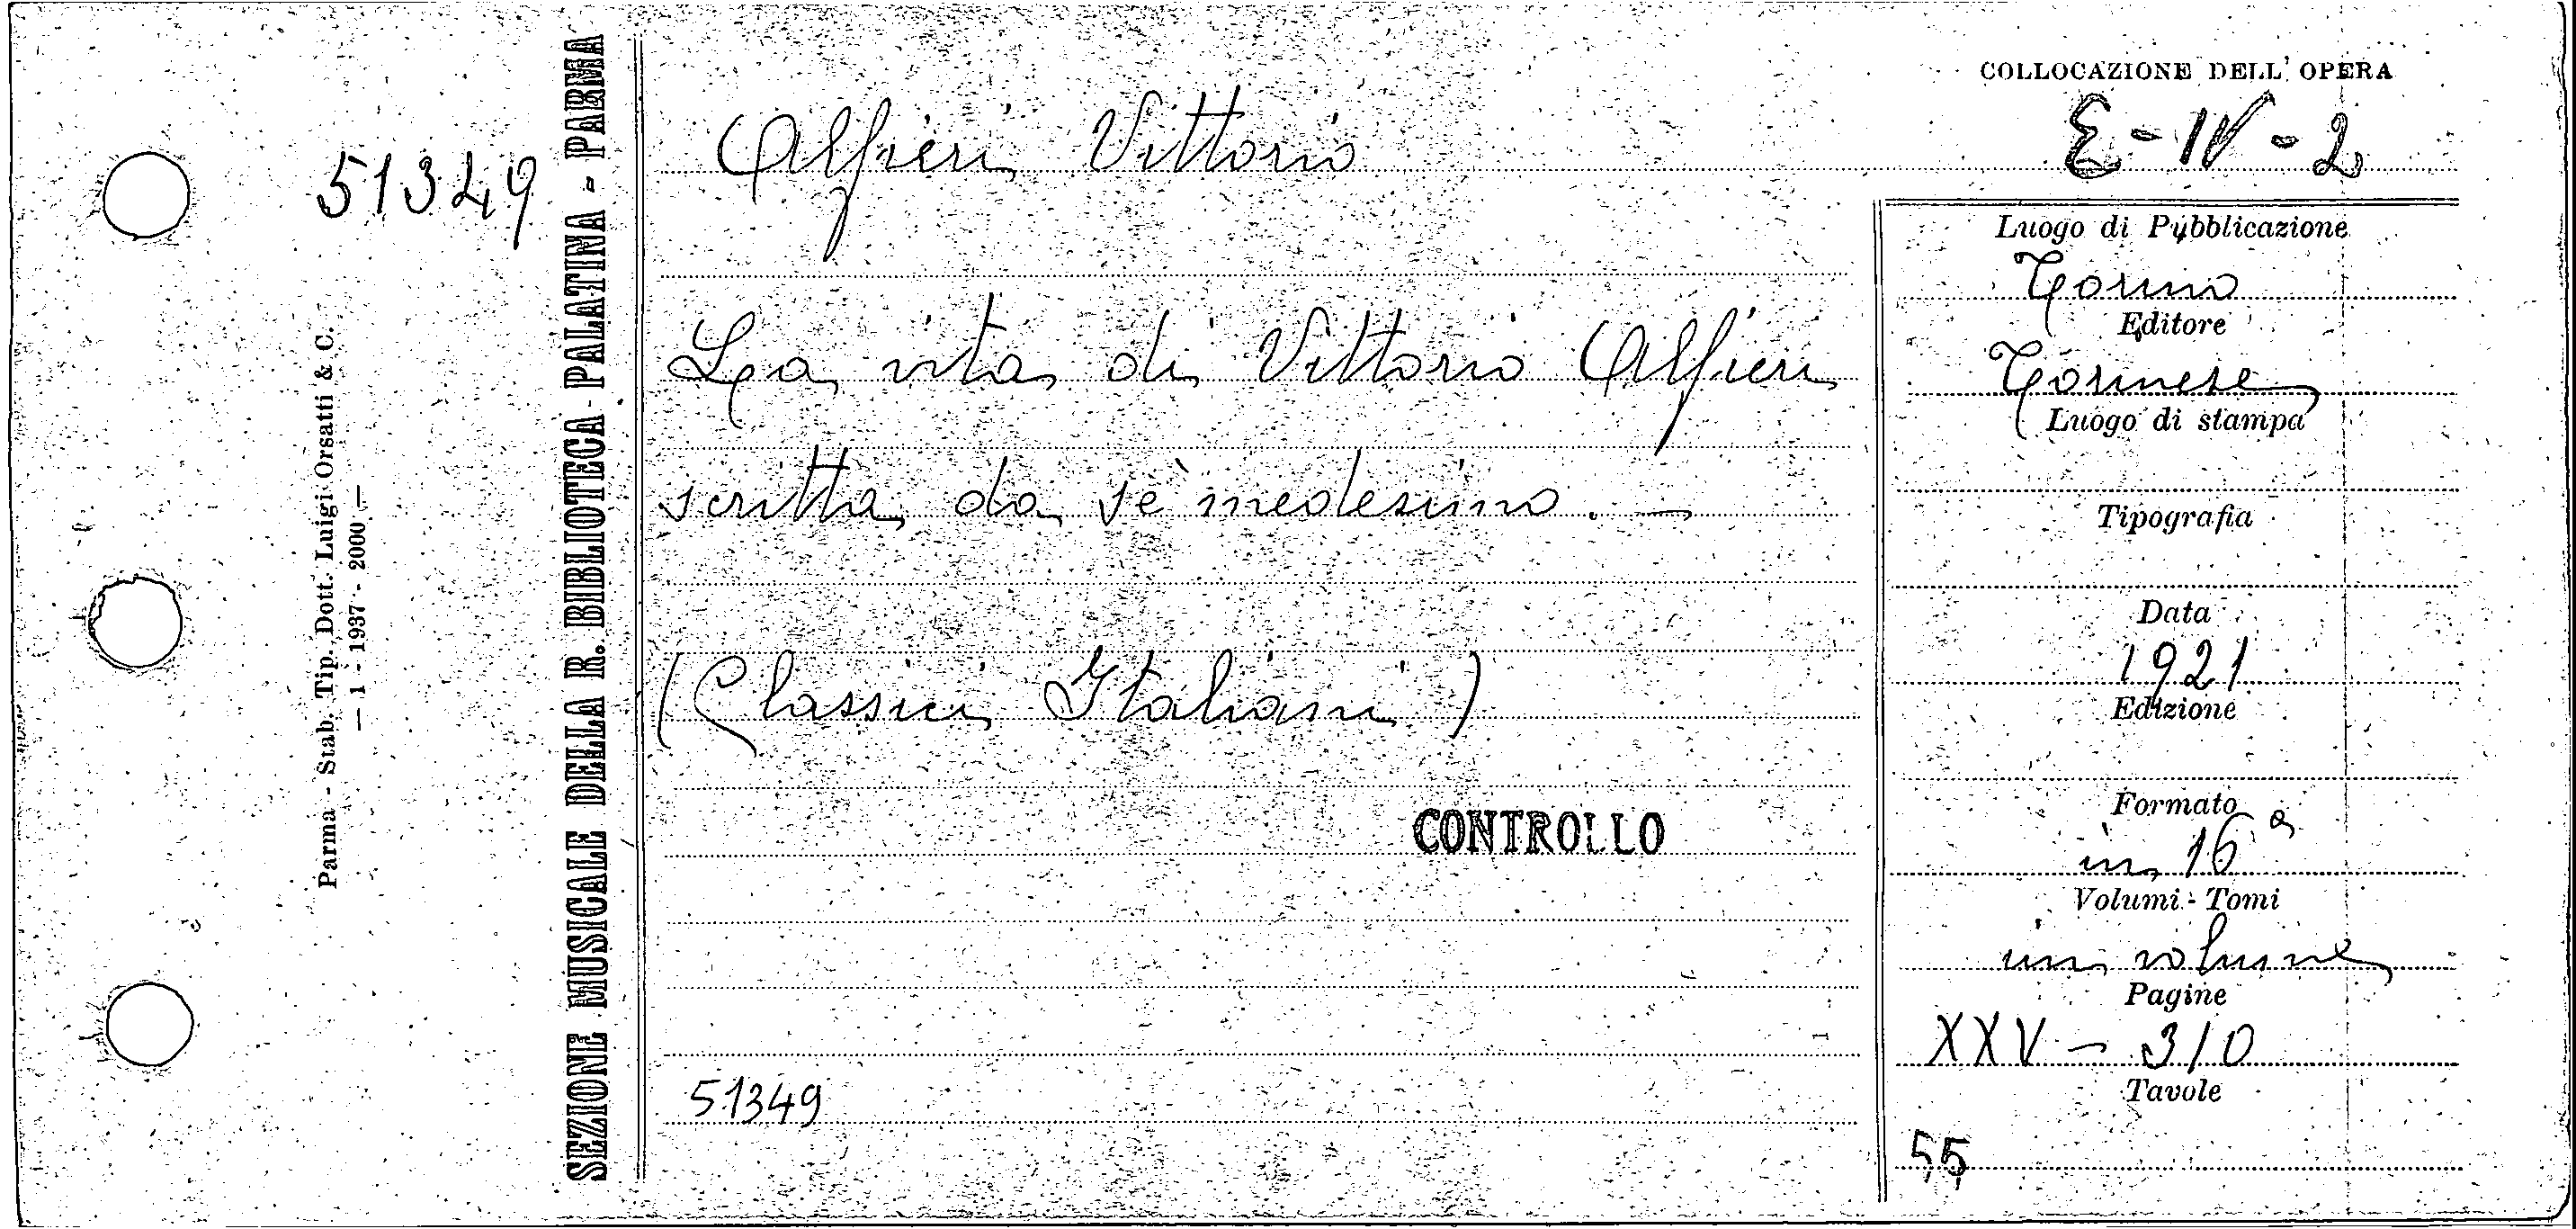 COLLOCAZIONE DELL' OPERA
E - IV - 2
51349
Parma - Stab. Tip. Dott. Luigi Orsatti & C.
— 1 - 1937 - 2000 —
SEZIONE MUSICALE DELLA R. BIBLIOTECA PALATINA - PARMA
Alfieri Vittorio
La vita di Vittorio Alfieri
scritta da sè medesimo. —
(Classici Italiani)
CONTROLLO
51349
Luogo di Pubblicazione
Torino
Editore
Torinese
Luogo di stampa
Tipografia
Data
1921
Edizione
Formato
in 16°
Volumi - Tomi
un volume
Pagine
XXV — 310
Tavole
55